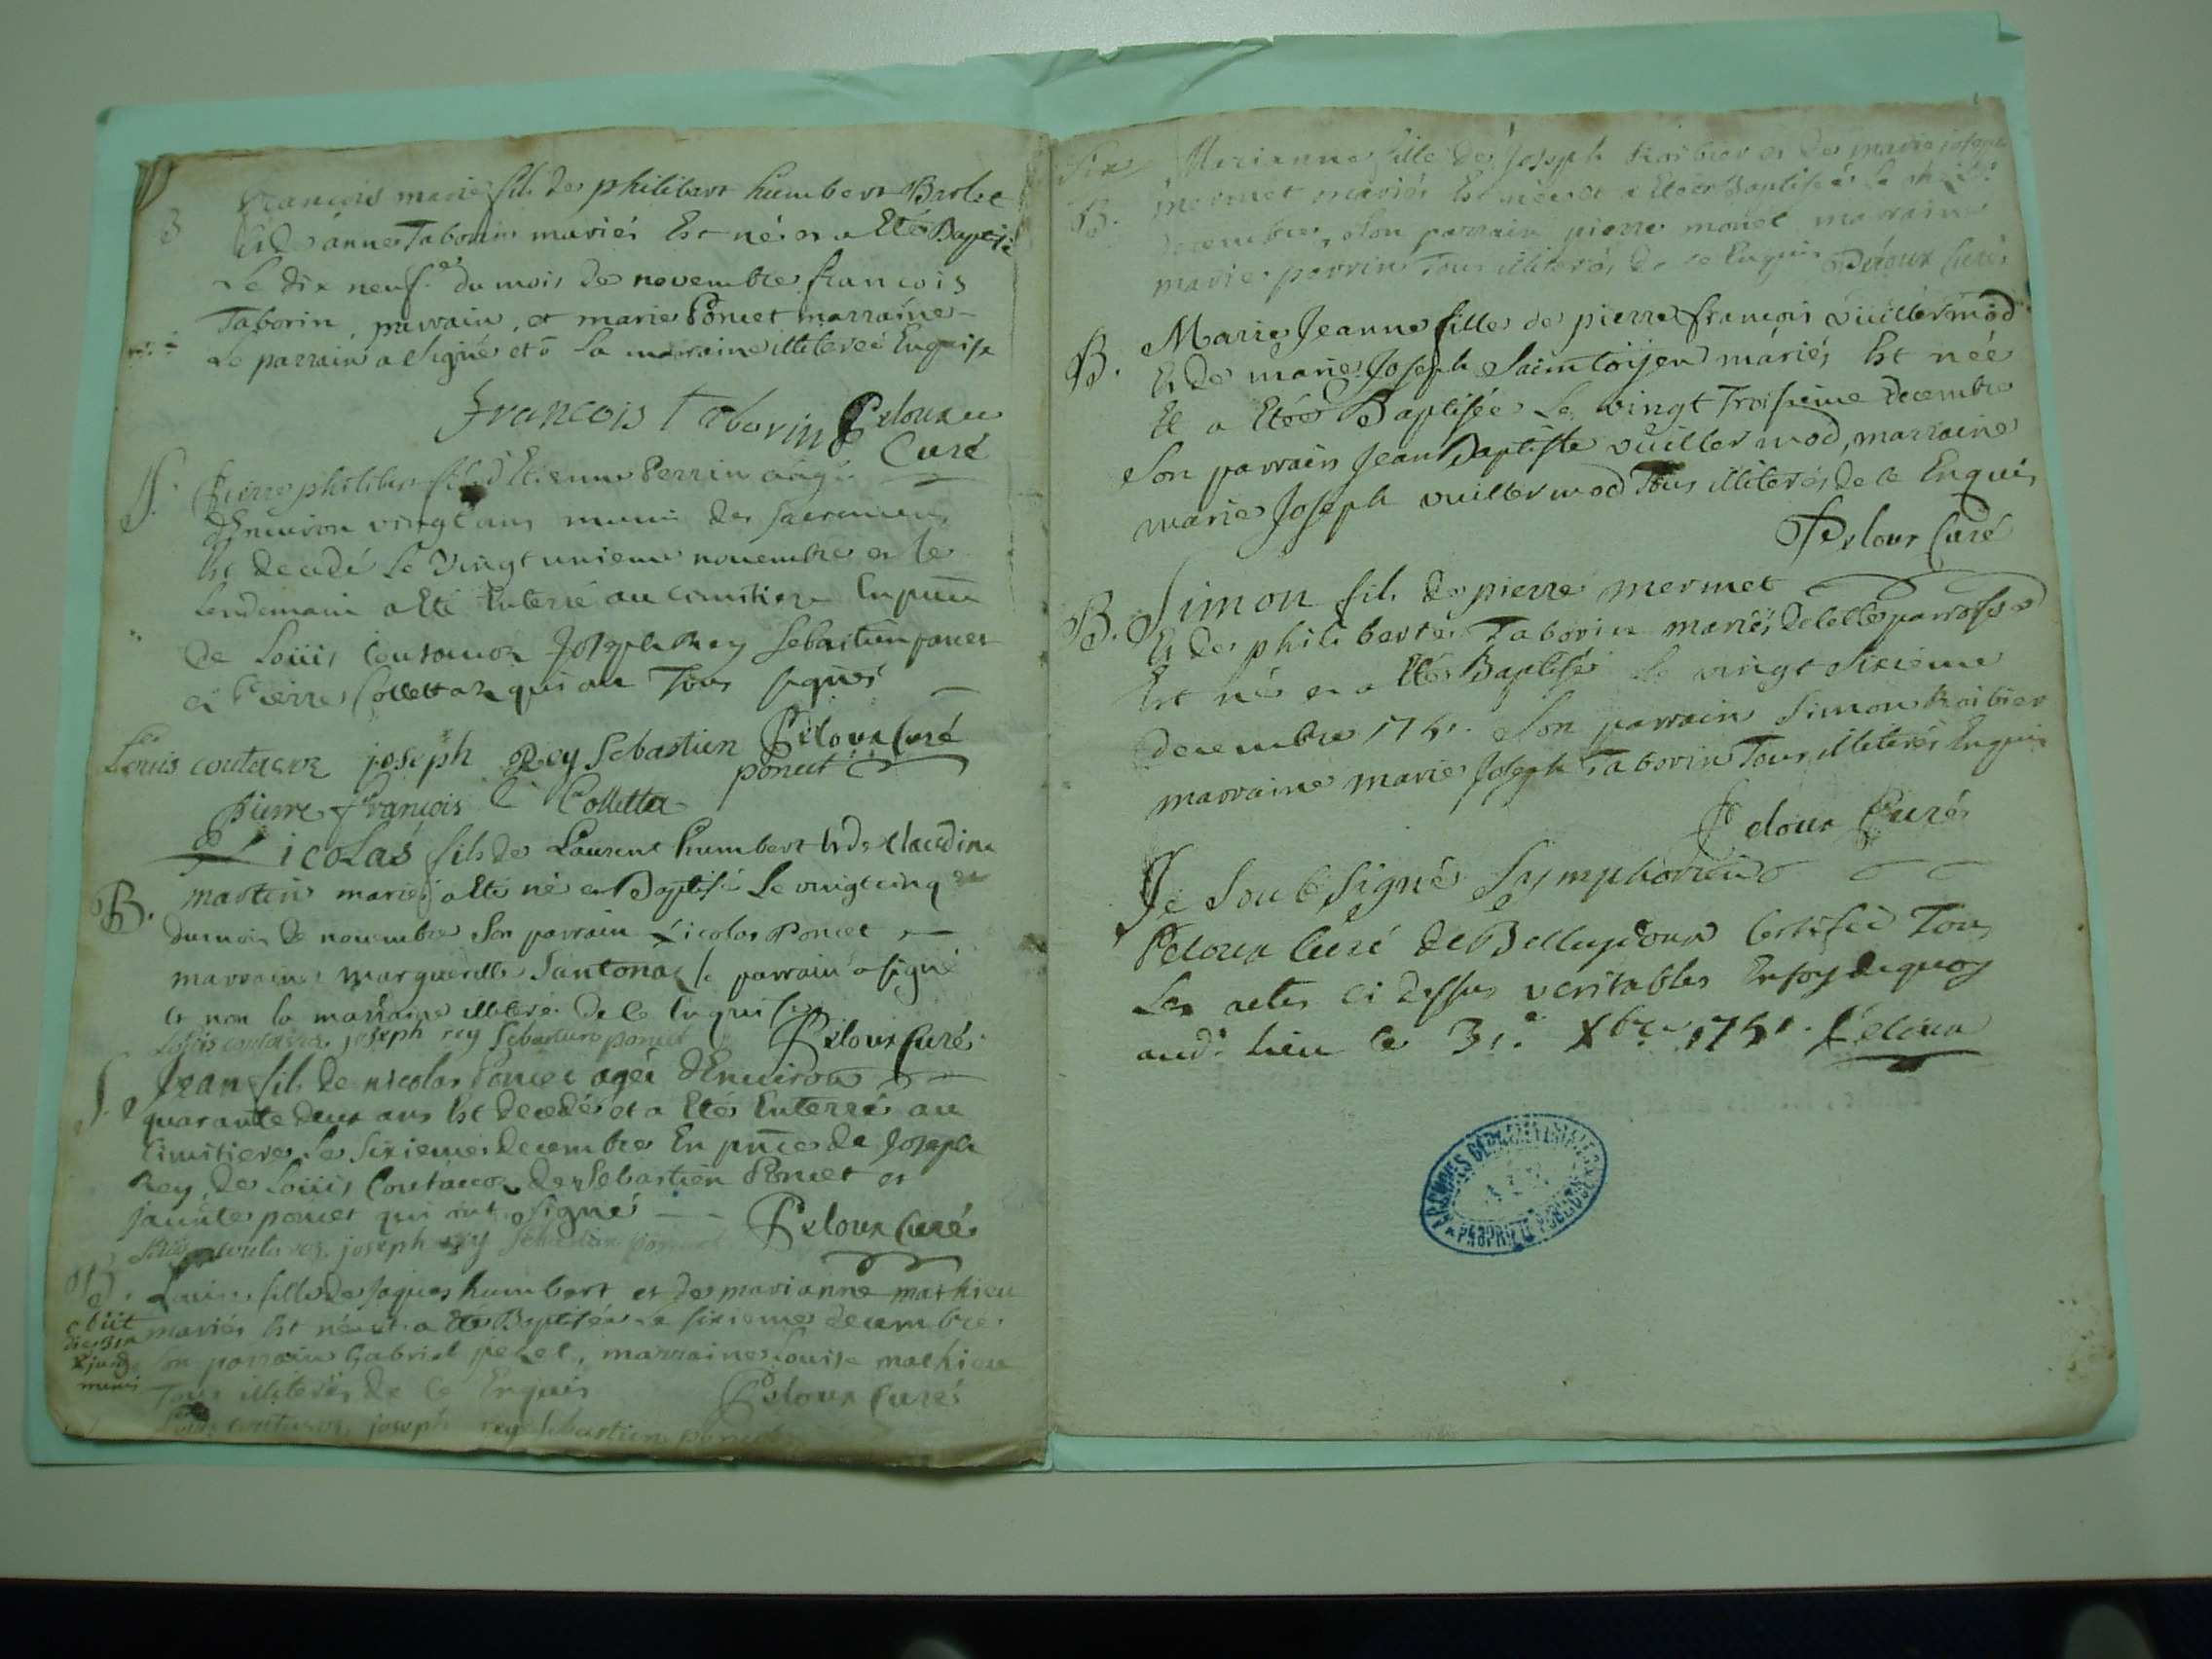 B
francois marie fils de philibert humbert Barbet
Et de anne Taborin mariés Est né et a Eté Baptisé
Le dix neuf.e du mois de novembre francois
Taborin, parrain, et marie Poncet marraine
Le parrain a signé et õ la marraine illiterée Enquise
francois taborin Peloux
Curé
S.
Pierre philibert fils d'Etienne Perrin agé
d'Environ vingt ans muni des sacremens
Est decedé le vingt unieme novembre et le
lendemain a Eté Enterré au cimitiere En pñce
de Loüis coutavoz Joseph Rey Sebastien poncet
et Pierre Collettaz qui ont Tous signés
Louis coutavoz joseph Rey Sebastien Peloux Curé
poncet
pierre françois Colletta
B.
Nicolas fils de Laurent humbert Et de claudine
martin mariés a Eté né et Baptisé Le vingt cinq
du mois de novembre Son parrain Nicolas Poncet
marraine marguerite Santonaz le parrain a signé
et non la marraine illiterée de ce Enquise
Louis coutavoz joseph rey Sebastien poncet Peloux Curé
S.
Jean fils de nicolas Poncet agéé d'Environ
quarante deux ans Est decedé et a Eté Enterré au
Cimitiere Le sixieme decembre En pñce de Joseph
Rey, de Loüis Coutavoz de Sebastien Poncet et
poncet qui ont signé
Peloux Curé
coutavoz, joseph rey Sebastien poncet
B.
obiit
Louise fille de Jaques humbert et de marianne mathieu
mariés Est née et a Eté Baptisée Le sixieme decembre
son parrain Gabriel, marraine Louise mathieu
Tous illiterés de ce Enquis Peloux Curé
Louis coutavoz, joseph rey Sebastien poncet
Marianne fille de Joseph et de marie joseph
B.
mermet mariés Est née et a Etéé Baptisée le
decembre, Son parrain pierre monet marraine
marie perrin Tous illiterés de ce Enquis Peloux Curé
B.
Marie Jeanne fille de pierre françois vüillermod
Et de marie Joseph Saintoijen mariés Est née
Et a Etéé Baptisée Le vingt Troisieme decembre
Son parrain Jean Baptiste vüillermod, marraine
marie Joseph vuillermod Tous illiterés de ce Enquis
Peloux Curé
B.
Simon fils de pierre mermet
Et de philiberte Taborin mariés de cette parroisse
Est né et a Eté Baptisé le vingt Sixieme
decembre 1751. Son parrain Simon
marraine marie Joseph Taborin Tous illiterés Enquis
Peloux Curé
Je Soubsigné Saymphorien
Peloux Curé de Belleydoux Certifie Tous
Les actes ci dessus veritables En foy de quoy
aud.t lieu ce 31.e Xbre 1751. Peloux
ARCHIVES DEPARTEMENTALES
PROPRIETE PUBLIQUE